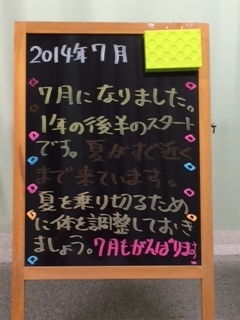 2014年7月
7月になりました。
1年の後半のスタート
です。夏がすぐ近く
まで来ています。
夏を乗り切るため
に体を調整しておき
ましょう。7月もがんばります